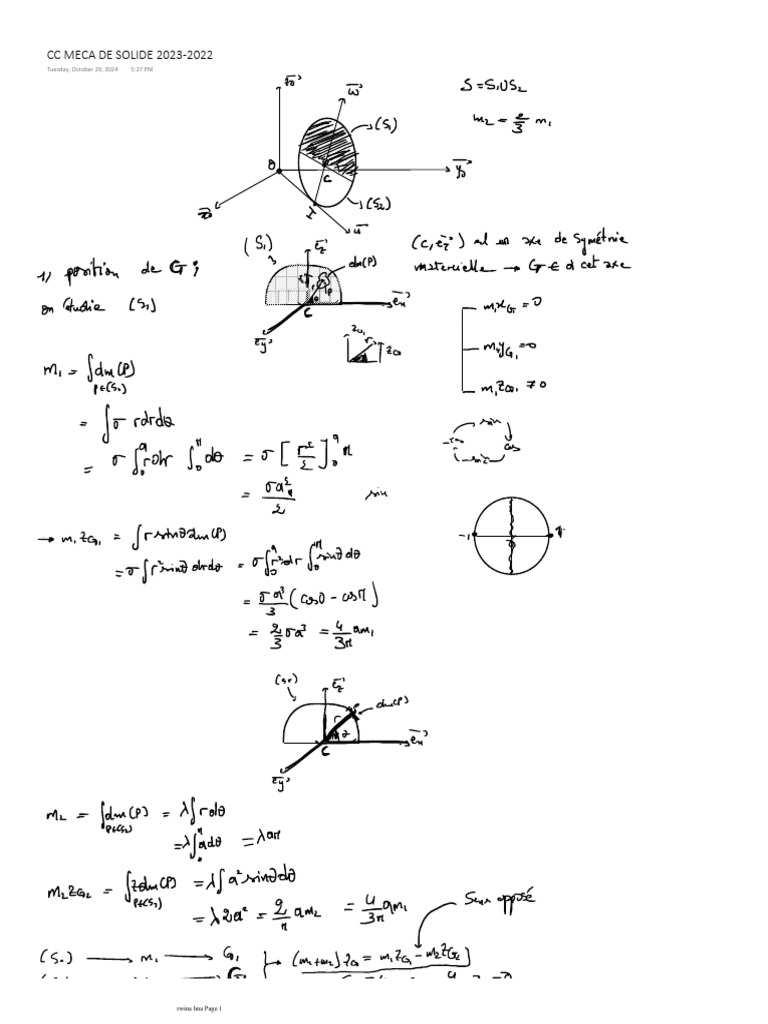 CC MECA DE SOLIDE 2023-2022
Tuesday, October 29, 2024 5:27 PM
S = S₁∪S₂
m₂ = 2/3 m₁
z₀
w
(S₁)
O
C
y₀
(S₂)
I
u
x₀
1) position de G ;
on étudie (S₁)
(S₁)
e_z
dm(P)
C
e_x
e_y
(C, e_z) est un axe de symétrie
materielle → G ∈ à cet axe
m₁x_G₁ = 0
m₁y_G₁ = 0
m₁z_G₁ ≠ 0
m₁ = ∫ dm(P)
P∈(S₁)
= ∫ σ r dr dθ
= σ ∫₀^a r dr ∫₀^π dθ = σ [r²/2]₀^a π
= σa²π/2
sin
sin
cos
-sin
-cos
-1
→ m₁z_G₁ = ∫ r sinθ dm(P)
= σ ∫ r² sinθ dr dθ = σ ∫₀^a r² dr ∫₀^π sinθ dθ
= σa³/3 (cos0 - cosπ)
= 2/3 σa³ = 4/3π am₁
e_z
dm(P)
C
e_x
e_y
m₂ = ∫ dm(P) = λ ∫ r dθ
P∈(S₂)
= λ ∫₀^π a dθ = λaπ
m₂z_G₂ = ∫ z dm(P) = λ ∫ a² sinθ dθ
P∈(S₂)
= λ2a² = 2/π am₂ = 4/3π am₁
Sens opposé
(S₁) → m₁ → G₁
→ (m₁+m₂) z_G = m₁z_G₁ - m₂z_G₂
rwina hna Page 1